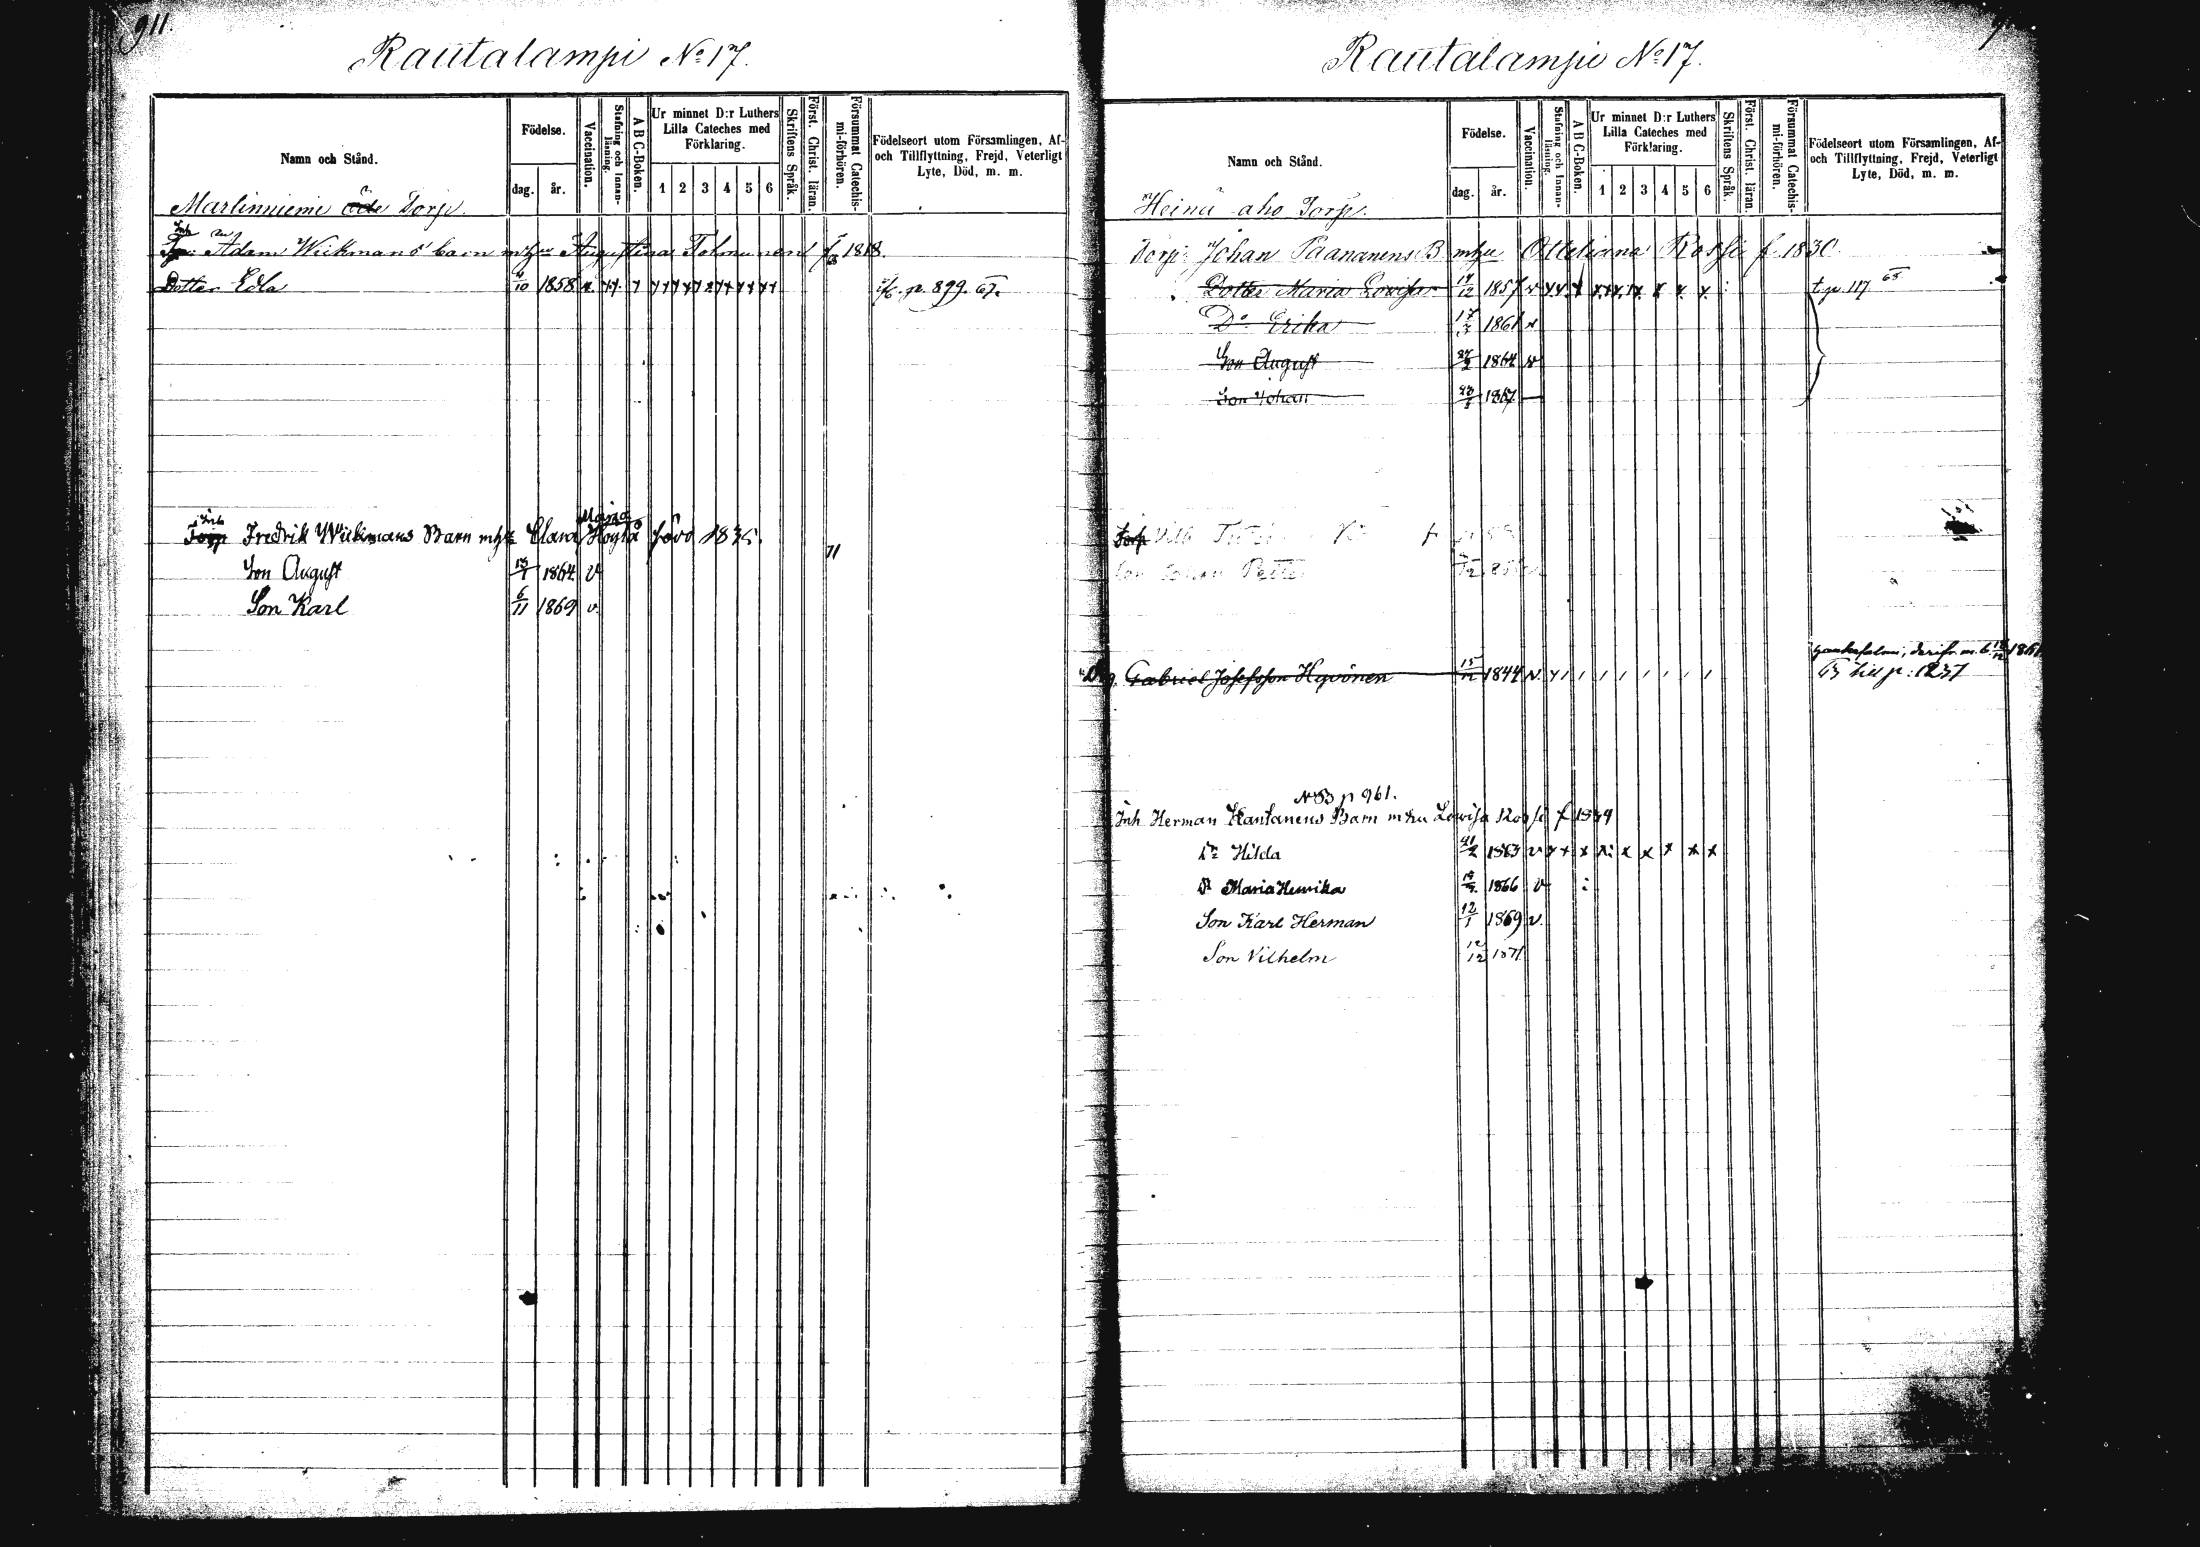 911.
Rautalampi No 17.
Namn och Stånd.
Födelse.
dag.
år.
Vaccination.
Stafning och Innan-läsning.
A B C-Boken.
Ur minnet D:r Luthers Lilla Cateches med Förklaring.
1 2 3 4 5 6
Skriftens Språk.
Först. Christ. läran.
Försummat Catechis-mi-förhören.
Födelseort utom Församlingen, Af- och Tillflyttning, Frejd, Veterligt Lyte, Död, m. m.
Martinniemi Torp.
Inh Adam Wickmans barn m hu Augustina Tolmunen f 1818.
Dotter Edla 4/10 1858 p. 899. 67.
Maria
Inh Torp Fredrik Wickmans Barn mhu Clara Höglå född 183
71
Son August 13/1 1864 v
Son Karl 6/11 1869 v.
Rautalampi No 17.
Namn och Stånd.
Födelse.
dag.
år.
Vaccination.
Stafning och Innan-läsning.
A B C-Boken.
Ur minnet D:r Luthers Lilla Cateches med Förklaring.
1 2 3 4 5 6
Skriftens Språk.
Först. Christ. läran.
Försummat Catechis-mi-förhören.
Födelseort utom Församlingen, Af- och Tillflyttning, Frejd, Veterligt Lyte, Död, m. m.
Heinä aho Torp.
Torp: Johan Paananens B mhu Ottiliana Rossi f 1830
Dotter Maria Lovisa 14/12 1857 v t. p. 117 68
Do Erika 1861 v
Son August 1864 v
Son Johan 1867
Torp Vilh
Son Johan Petter
Drg. Gabriel Josefsson Hyvönen 15/12 1844 v. till p. 1237
NB p 961.
Inh Herman Kantanens Barn m hu Lovisa Rossi f 1839
Dr Hilda 21/2 1863 v x x x x x x x x x
Dr Maria Henrika 1866 v
Son Karl Herman 12/1 1869 v.
Son Vilhelm 12/12 1871